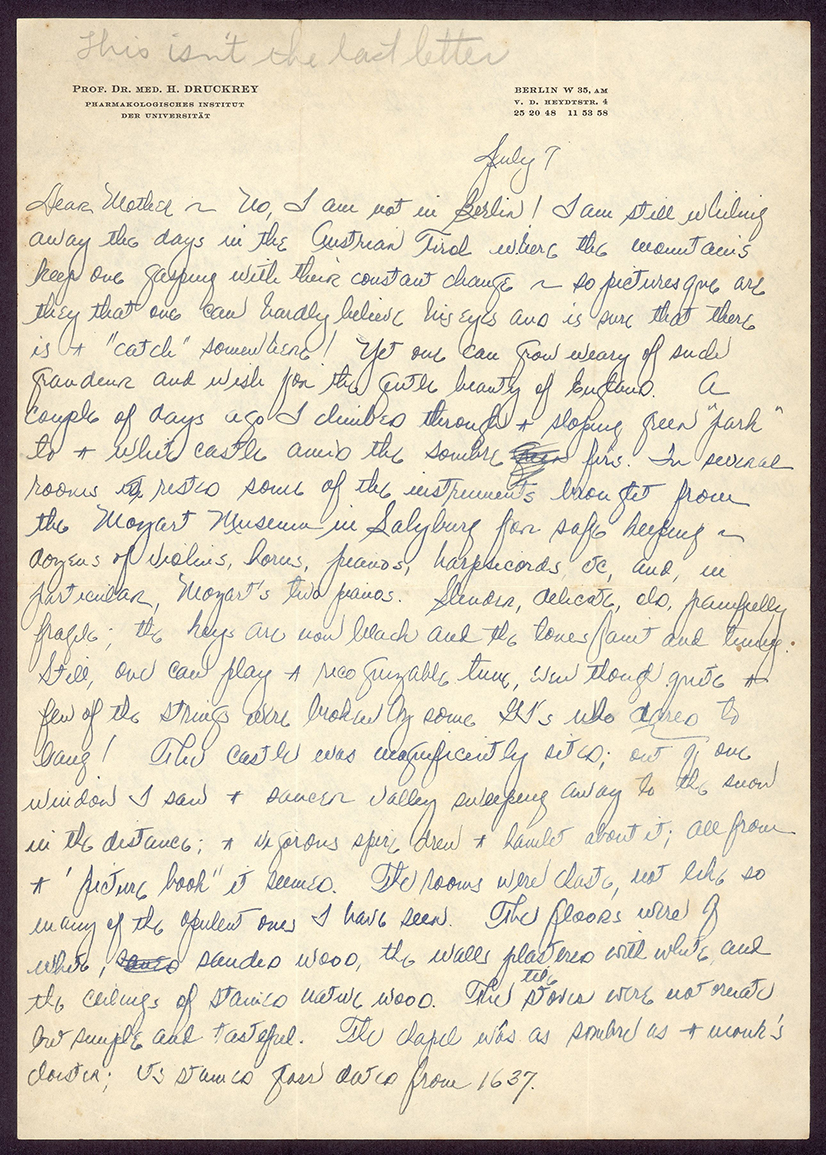 This isn't the last letter
PROF. DR. MED. H. DRUCKREY
PHARMAKOLOGISCHES INSTITUT
DER UNIVERSITÄT
BERLIN W 35, AM
V. D. HEYDTSTR. 4
25 20 48 11 53 58
July 7
Dear Mother ~ No, I am not in Berlin! I am still whiling
away the days in the Austrian Tirol where the mountains
keep one gasping with their constant change ~ so picturesque are
they that one can hardly believe his eyes and is sure that there
is a "catch" somewhere! Yet one can grow weary of such
grandeur and wish for the gentle beauty of England. A
couple of days ago I climbed through a sloping green "park"
to a white castle amid the sombre firs. In several
rooms rested some of the instruments brought from
the Mozart Museum in Salzburg for safe keeping ~
dozens of violins, horns, pianos, harpsicords, etc, and, in
particular, Mozart's two pianos. Slender, delicate, old, painfully
fragile; the keys are now black and the tones faint and tinny.
Still, one can play a recognizable tune, even though quite a
few of the strings were broken by some GI's who agreed to
bang! The castle was magnificently sited; out of one
window I saw a saucer valley sweeping away to the snow
in the distance; a vigorous spire drew a hamlet about it; all from
a "picture book" it seemed. The rooms were chaste, not like so
many of the opulent ones I have seen. The floors were of
white, sanded wood, the walls plastered with white, and
the ceilings of stained native wood. The tile stoves were not ornate
but simple and tasteful. The chapel was as sombre as a monk's
cloister; its stained glass dated from 1637.